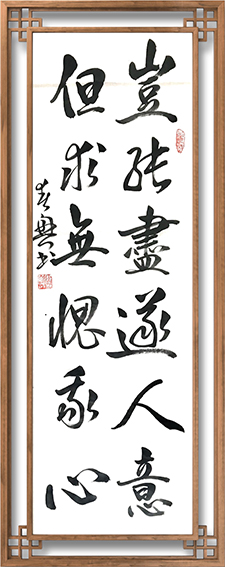 豈能盡遂人意
但求無愧我心